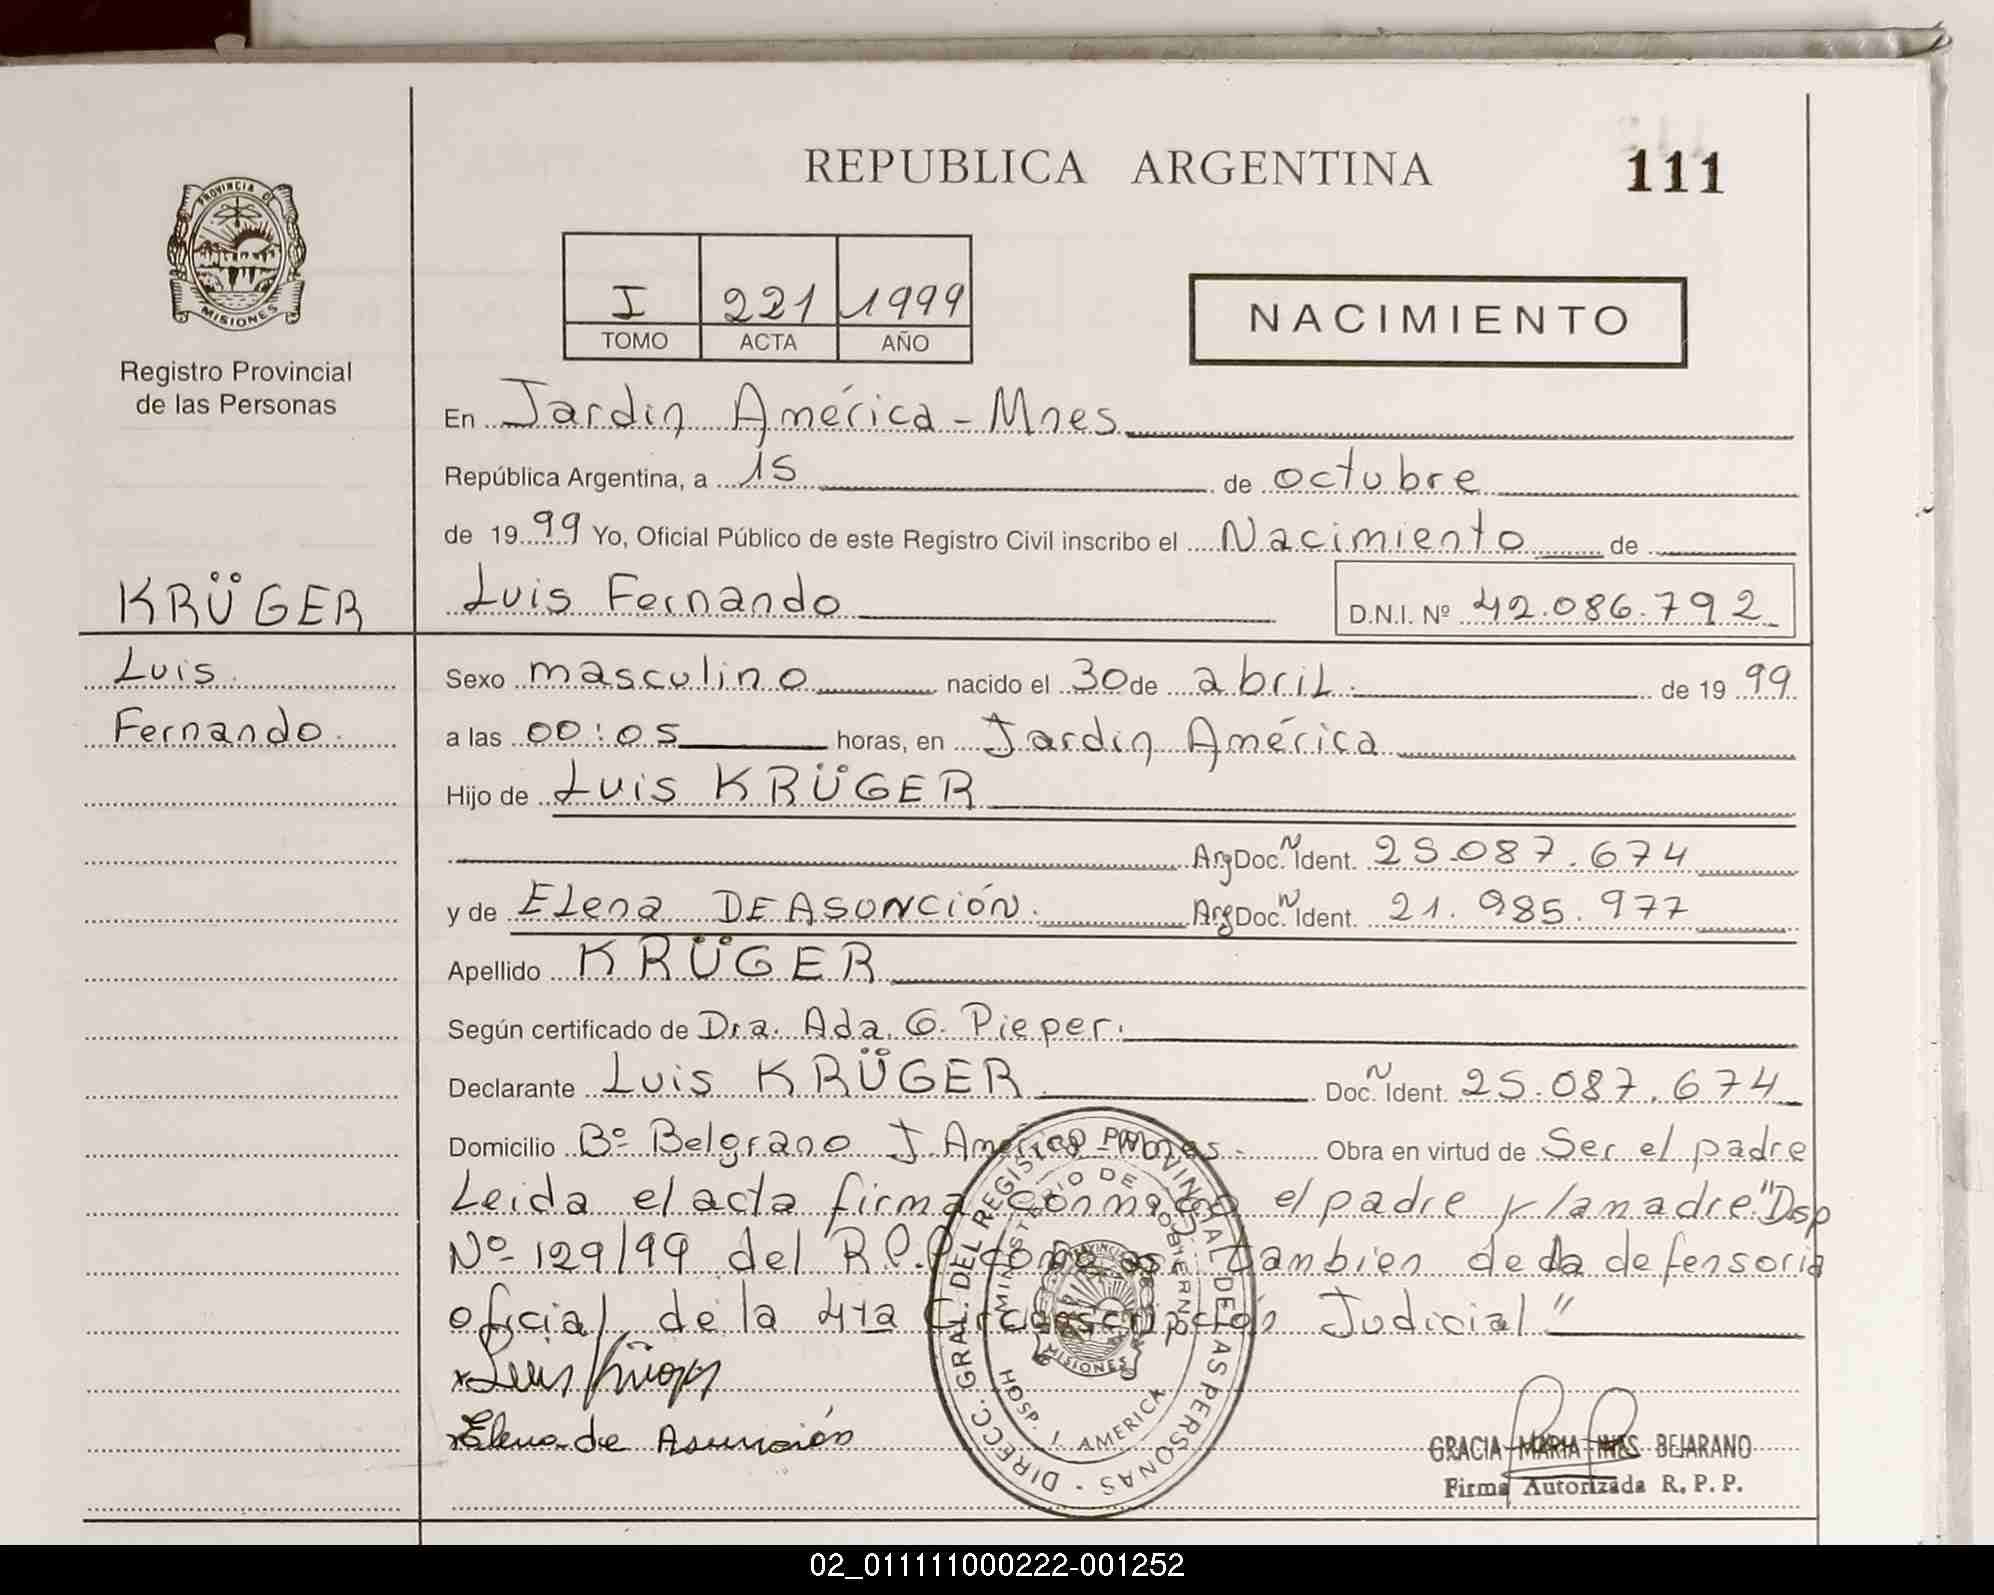 REPUBLICA ARGENTINA
111
PROVINCIA DE
MISIONES
Registro Provincial
de las Personas
I 221 1999
TOMO ACTA AÑO
NACIMIENTO
En Jardin América - Mnes
República Argentina, a 15 de octubre
de 1999 Yo, Oficial Público de este Registro Civil inscribo el Nacimiento de
KRÜGER
Luis Fernando D.N.I. Nº 42.086.792
Luis
Fernando
Sexo masculino nacido el 30 de abril de 1999
a las 00:05 horas, en Jardin América
Hijo de Luis KRÜGER
Arg Doc. N Ident. 25.087.674
y de Elena DE ASONCIÓN. Arg Doc. N Ident. 21.985.977
Apellido KRÜGER
Según certificado de Dra. Ada. G. Pieper.
Declarante Luis KRÜGER Doc. N Ident. 25.087.674
Domicilio Bº Belgrano J. América - Mnes. Obra en virtud de Ser el padre
Leida el acta firma conmigo el padre y la madre "Dsp
Nº 129/99 del R.P.P como asi tambien de la defensoria
oficial de la 4ta Circunscripción Judicial"
x Luis Krüger
x Elena de Asunción
DIRECC. GRAL. DEL REGISTRO PROVINCIAL DE LAS PERSONAS
MINISTERIO DE GOBIERNO
PROVINCIA
MISIONES
HOSP. J. AMERICA
GRACIA MARIA INES BEJARANO
Firma Autorizada R. P. P.
02_011111000222-001252